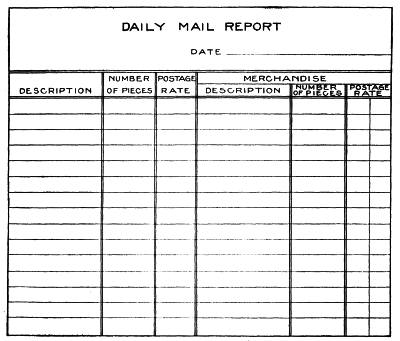 DAILY MAIL REPORT
DATE
DESCRIPTION
NUMBER
OF PIECES
POSTAGE
RATE
MERCHANDISE
DESCRIPTION
NUMBER
OF PIECES
POSTAGE
RATE